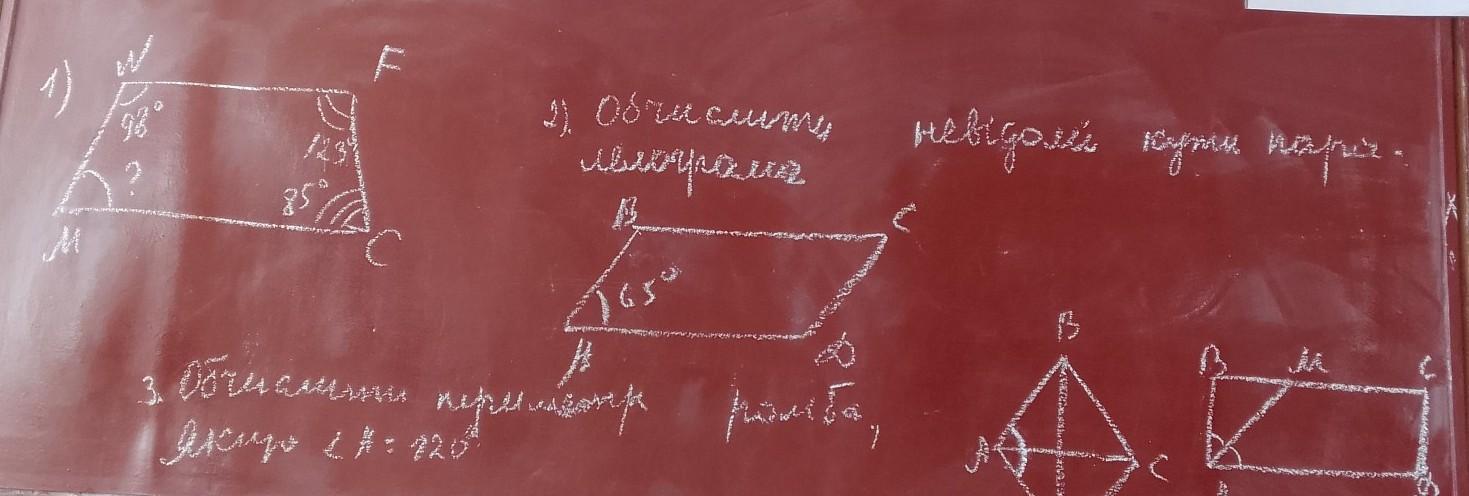 1)
W
F
98°
123°
?
85°
M
C
2). Обчислити невідомі кути пара-
лелограма
B
C
65°
A
D
3. Обчислити периметр ромба,
якщо ∠A = 120°
B
A
C
B
M
C